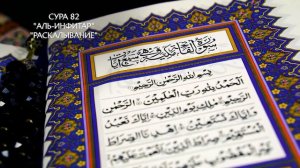 СУРА 82
"АЛЬ-ИНФИТАР"
"РАСКАЛЫВАНИЕ"
سُورَةُ الْفَاتِحَةِ
بِسْمِ اللَّهِ الرَّحْمَنِ الرَّحِيمِ
اَلْحَمْدُ لِلَّهِ رَبِّ الْعَالَمِينَ اَلرَّحْمَنِ
الرَّحِيمِ مَالِكِ يَوْمِ الدِّينِ اِيَّاكَ نَعْبُدُ
وَاِيَّاكَ نَسْتَعِينُ اِهْدِنَا الصِّرَاطَ